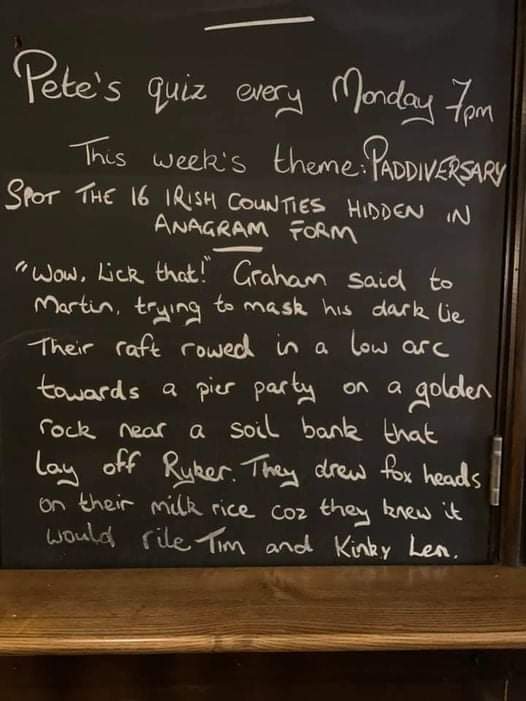 Pete's quiz every Monday 7pm
This week's theme: PADDIVERSARY
SPOT THE 16 IRISH COUNTIES HIDDEN IN
ANAGRAM FORM
"Wow, Lick that!" Graham said to
Martin, trying to mask his dark lie
Their raft rowed in a low arc
towards a pier party on a golden
rock near a soil bank that
lay off Ryker. They drew fox heads
on their milk rice coz they knew it
would rile Tim and Kinky Len.